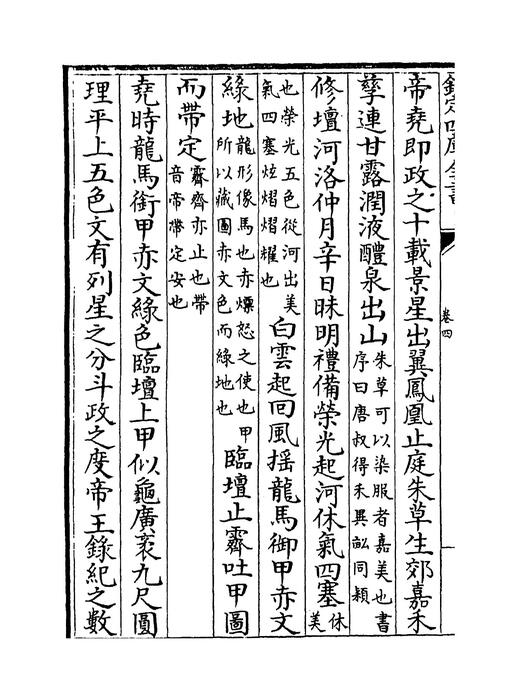 欽定四庫全書
卷四
帝堯即政之十載景星出翼鳳凰止庭朱草生郊嘉禾
孳連甘露潤液醴泉出山朱草可以染服者嘉美也書序曰唐叔得禾異畝同穎
修壇河洛仲月辛日昧明禮備榮光起河休氣四塞休美
也榮光五色從河出美氣四塞炫熠熠耀也白雲起回風揺龍馬御甲赤文
緑地龍形像馬也赤熛怒之使也甲所以藏圖赤文色而緑地也臨壇止霽吐甲圖
而帶定霽霽亦止也帶音帝帶定安也
堯時龍馬銜甲赤文緑色臨壇上甲似龜廣袤九尺圓
理平上五色文有列星之分斗政之度帝王錄紀之數